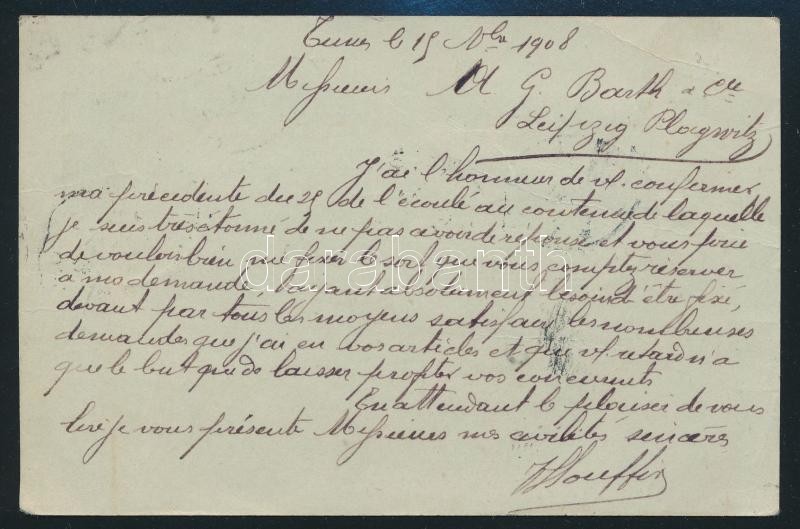 Tunis le 15 Nbre 1908
Messieurs G. Barth & Cie
Leipzig Plagwitz
J'ai l'honneur de vs. confirmer
ma précédente du 25 de l'écoulé au contenu de laquelle
je suis très étonné de ne pas avoir de réponse et vous prie
de vouloir bien me fixer le sort que vous comptez réserver
a ma demande, ayant absolument besoin d'être fixé,
devant par tous les moyens satisfaire les nombreuses
demandes que j'ai en vos articles et qu'un vs. retard n'a
que le but que de laisser profiter vos concurrents
En attendant le plaisir de vous
lire je vous présente Messieurs mes civilités sincères
darabanth